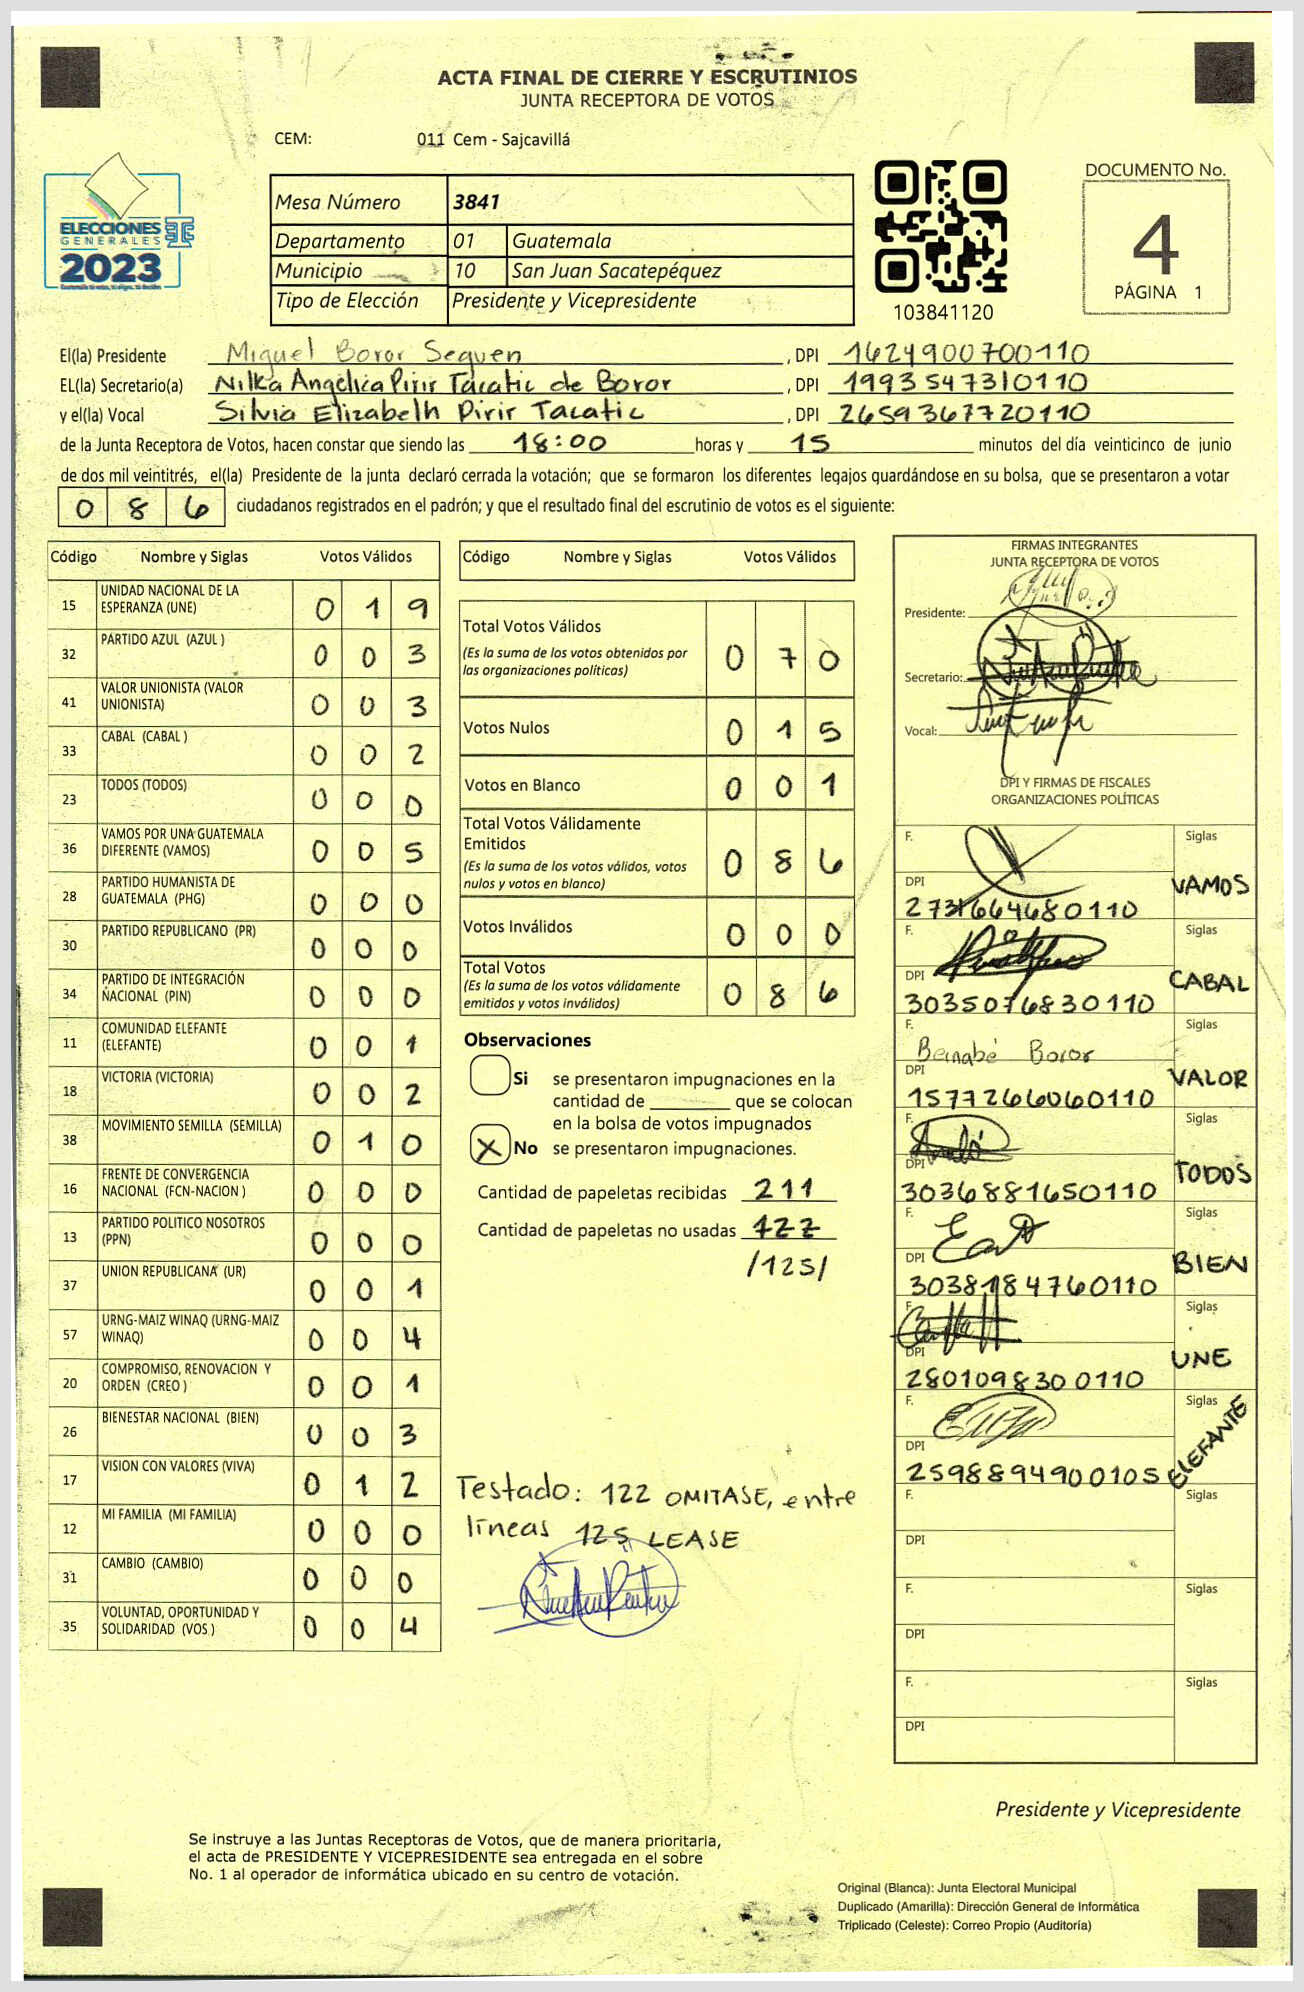 ACTA FINAL DE CIERRE Y ESCRUTINIOS
JUNTA RECEPTORA DE VOTOS
CEM: 011 Cem - Sajcavillá
ELECCIONES
GENERALES
2023
Mesa Número 3841
Departamento 01 Guatemala
Municipio 10 San Juan Sacatepéquez
Tipo de Elección Presidente y Vicepresidente
103841120
DOCUMENTO No.
4
PÁGINA 1
El(la) Presidente Miguel Boror Sequen , DPI 1624900700110
EL(la) Secretario(a) Nilka Angélica Pirir Tacatic de Boror , DPI 1993547310110
y el(la) Vocal Silvia Elizabeth Pirir Tacatic , DPI 2659367720110
de la Junta Receptora de Votos, hacen constar que siendo las 18:00 horas y 15 minutos del día veinticinco de junio
de dos mil veintitrés, el(la) Presidente de la junta declaró cerrada la votación; que se formaron los diferentes legajos guardándose en su bolsa, que se presentaron a votar
0 8 6 ciudadanos registrados en el padrón; y que el resultado final del escrutinio de votos es el siguiente:
Código Nombre y Siglas Votos Válidos
15 UNIDAD NACIONAL DE LA
ESPERANZA (UNE) 0 1 9
32 PARTIDO AZUL (AZUL ) 0 0 3
41 VALOR UNIONISTA (VALOR
UNIONISTA) 0 0 3
33 CABAL (CABAL ) 0 0 2
23 TODOS (TODOS) 0 0 0
36 VAMOS POR UNA GUATEMALA
DIFERENTE (VAMOS) 0 0 5
28 PARTIDO HUMANISTA DE
GUATEMALA (PHG) 0 0 0
30 PARTIDO REPUBLICANO (PR) 0 0 0
34 PARTIDO DE INTEGRACIÓN
NACIONAL (PIN) 0 0 0
11 COMUNIDAD ELEFANTE
(ELEFANTE) 0 0 1
18 VICTORIA (VICTORIA) 0 0 2
38 MOVIMIENTO SEMILLA (SEMILLA) 0 1 0
16 FRENTE DE CONVERGENCIA
NACIONAL (FCN-NACION ) 0 0 0
13 PARTIDO POLITICO NOSOTROS
(PPN) 0 0 0
37 UNION REPUBLICANA (UR) 0 0 1
57 URNG-MAIZ WINAQ (URNG-MAIZ
WINAQ) 0 0 4
20 COMPROMISO, RENOVACION Y
ORDEN (CREO ) 0 0 1
26 BIENESTAR NACIONAL (BIEN) 0 0 3
17 VISION CON VALORES (VIVA) 0 1 2
12 MI FAMILIA (MI FAMILIA) 0 0 0
31 CAMBIO (CAMBIO) 0 0 0
35 VOLUNTAD, OPORTUNIDAD Y
SOLIDARIDAD (VOS ) 0 0 4
Código Nombre y Siglas Votos Válidos
Total Votos Válidos
(Es la suma de los votos obtenidos por
las organizaciones políticas) 0 7 0
Votos Nulos 0 1 5
Votos en Blanco 0 0 1
Total Votos Válidamente
Emitidos
(Es la suma de los votos válidos, votos
nulos y votos en blanco) 0 8 6
Votos Inválidos 0 0 0
Total Votos
(Es la suma de los votos válidamente
emitidos y votos inválidos) 0 8 6
Observaciones
Si se presentaron impugnaciones en la
cantidad de ________ que se colocan
en la bolsa de votos impugnados
X No se presentaron impugnaciones.
Cantidad de papeletas recibidas 211
Cantidad de papeletas no usadas 122
/125/
Testado: 122 OMITASE, entre
líneas 125 LEASE
FIRMAS INTEGRANTES
JUNTA RECEPTORA DE VOTOS
Presidente:
Secretario:
Vocal:
DPI Y FIRMAS DE FISCALES
ORGANIZACIONES POLÍTICAS
F. Siglas
VAMOS
DPI
2731664680110
F. Siglas
CABAL
DPI
3035076830110
F. Siglas
Bernabé Boror
VALOR
DPI
1577266060110
F. Siglas
TODOS
DPI
3036881650110
F. Siglas
BIEN
DPI
3038184760110
F. Siglas
UNE
DPI
2801098300110
F. Siglas
ELEFANTE
DPI
2598894900105
F. Siglas
DPI
F. Siglas
DPI
F. Siglas
DPI
Presidente y Vicepresidente
Se instruye a las Juntas Receptoras de Votos, que de manera prioritaria,
el acta de PRESIDENTE Y VICEPRESIDENTE sea entregada en el sobre
No. 1 al operador de informática ubicado en su centro de votación.
Original (Blanca): Junta Electoral Municipal
Duplicado (Amarilla): Dirección General de Informática
Triplicado (Celeste): Correo Propio (Auditoría)